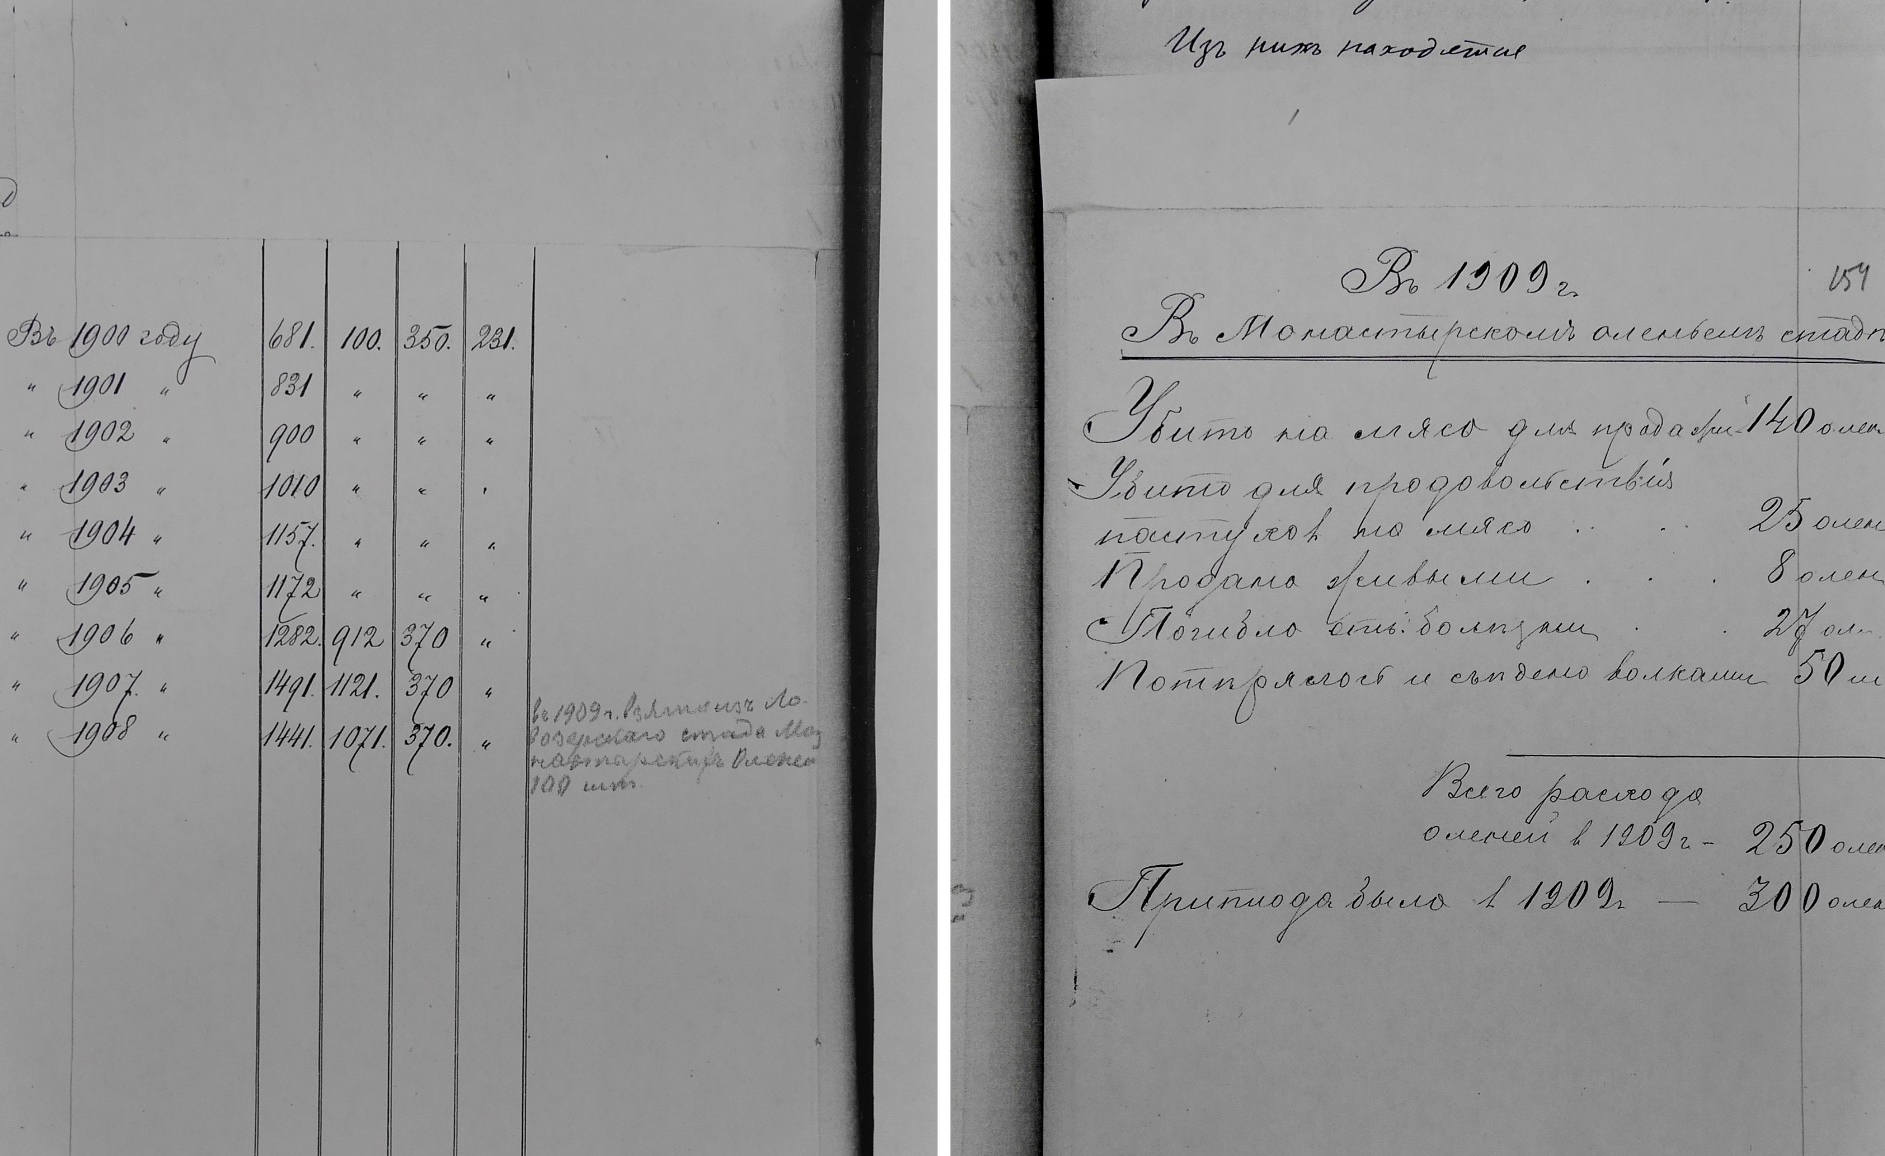 Въ 1900 году 681. 100. 350. 231.
" 1901 " 831 " " "
" 1902 " 900 " " "
" 1903 " 1010 " " "
" 1904 " 1157. " " "
" 1905 " 1172 " " "
" 1906 " 1282. 912 370 "
" 1907. " 1491. 1121. 370 "
" 1908 " 1441. 1071. 370. "
въ 1909 г. взято изъ Ло-
возерскаго стада Мо
настырскихъ Оленей
100 шт.
Изъ нихъ находятся
Въ 1909 г.
154
Въ Монастырскомъ оленьемъ стадѣ
Убито на мясо для продажи 140 олен
Убито для продовольствія
пастухов на мясо . . 25 олен
Продано живыми . . . 8 олен
Погибло отъ болѣзни . . 27 ол
Потерялось и съѣдено волками 50 ш
Всего расхода
оленей в 1909 г - 250 олен
Приплода было в 1909 г — 300 олен